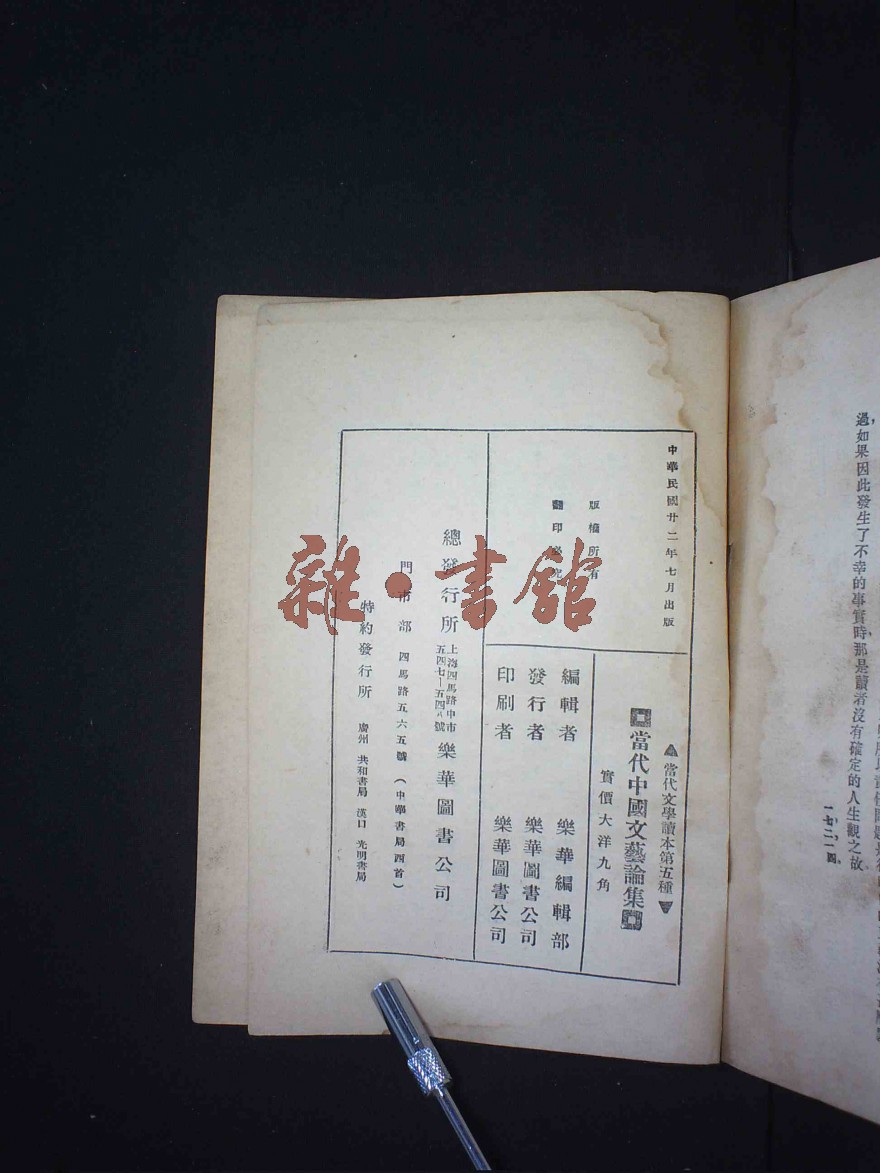 過如果因此發生了不幸的事實時，那是讀者沒有確定的人生觀之故。
一七，二，一四。
中華民國廿二年七月出版
版權所有
翻印必究
▲當代文學讀本第五種▼
當代中國文藝論集
實價大洋九角
編輯者 樂華編輯部
發行者 樂華圖書公司
印刷者 樂華圖書公司
總發行所 上海四馬路中市五四七—五四八號 樂華圖書公司
門市部 四馬路五六五號（中華書局西首）
特約發行所 廣州 共和書局 漢口 光明書局
雜·書館